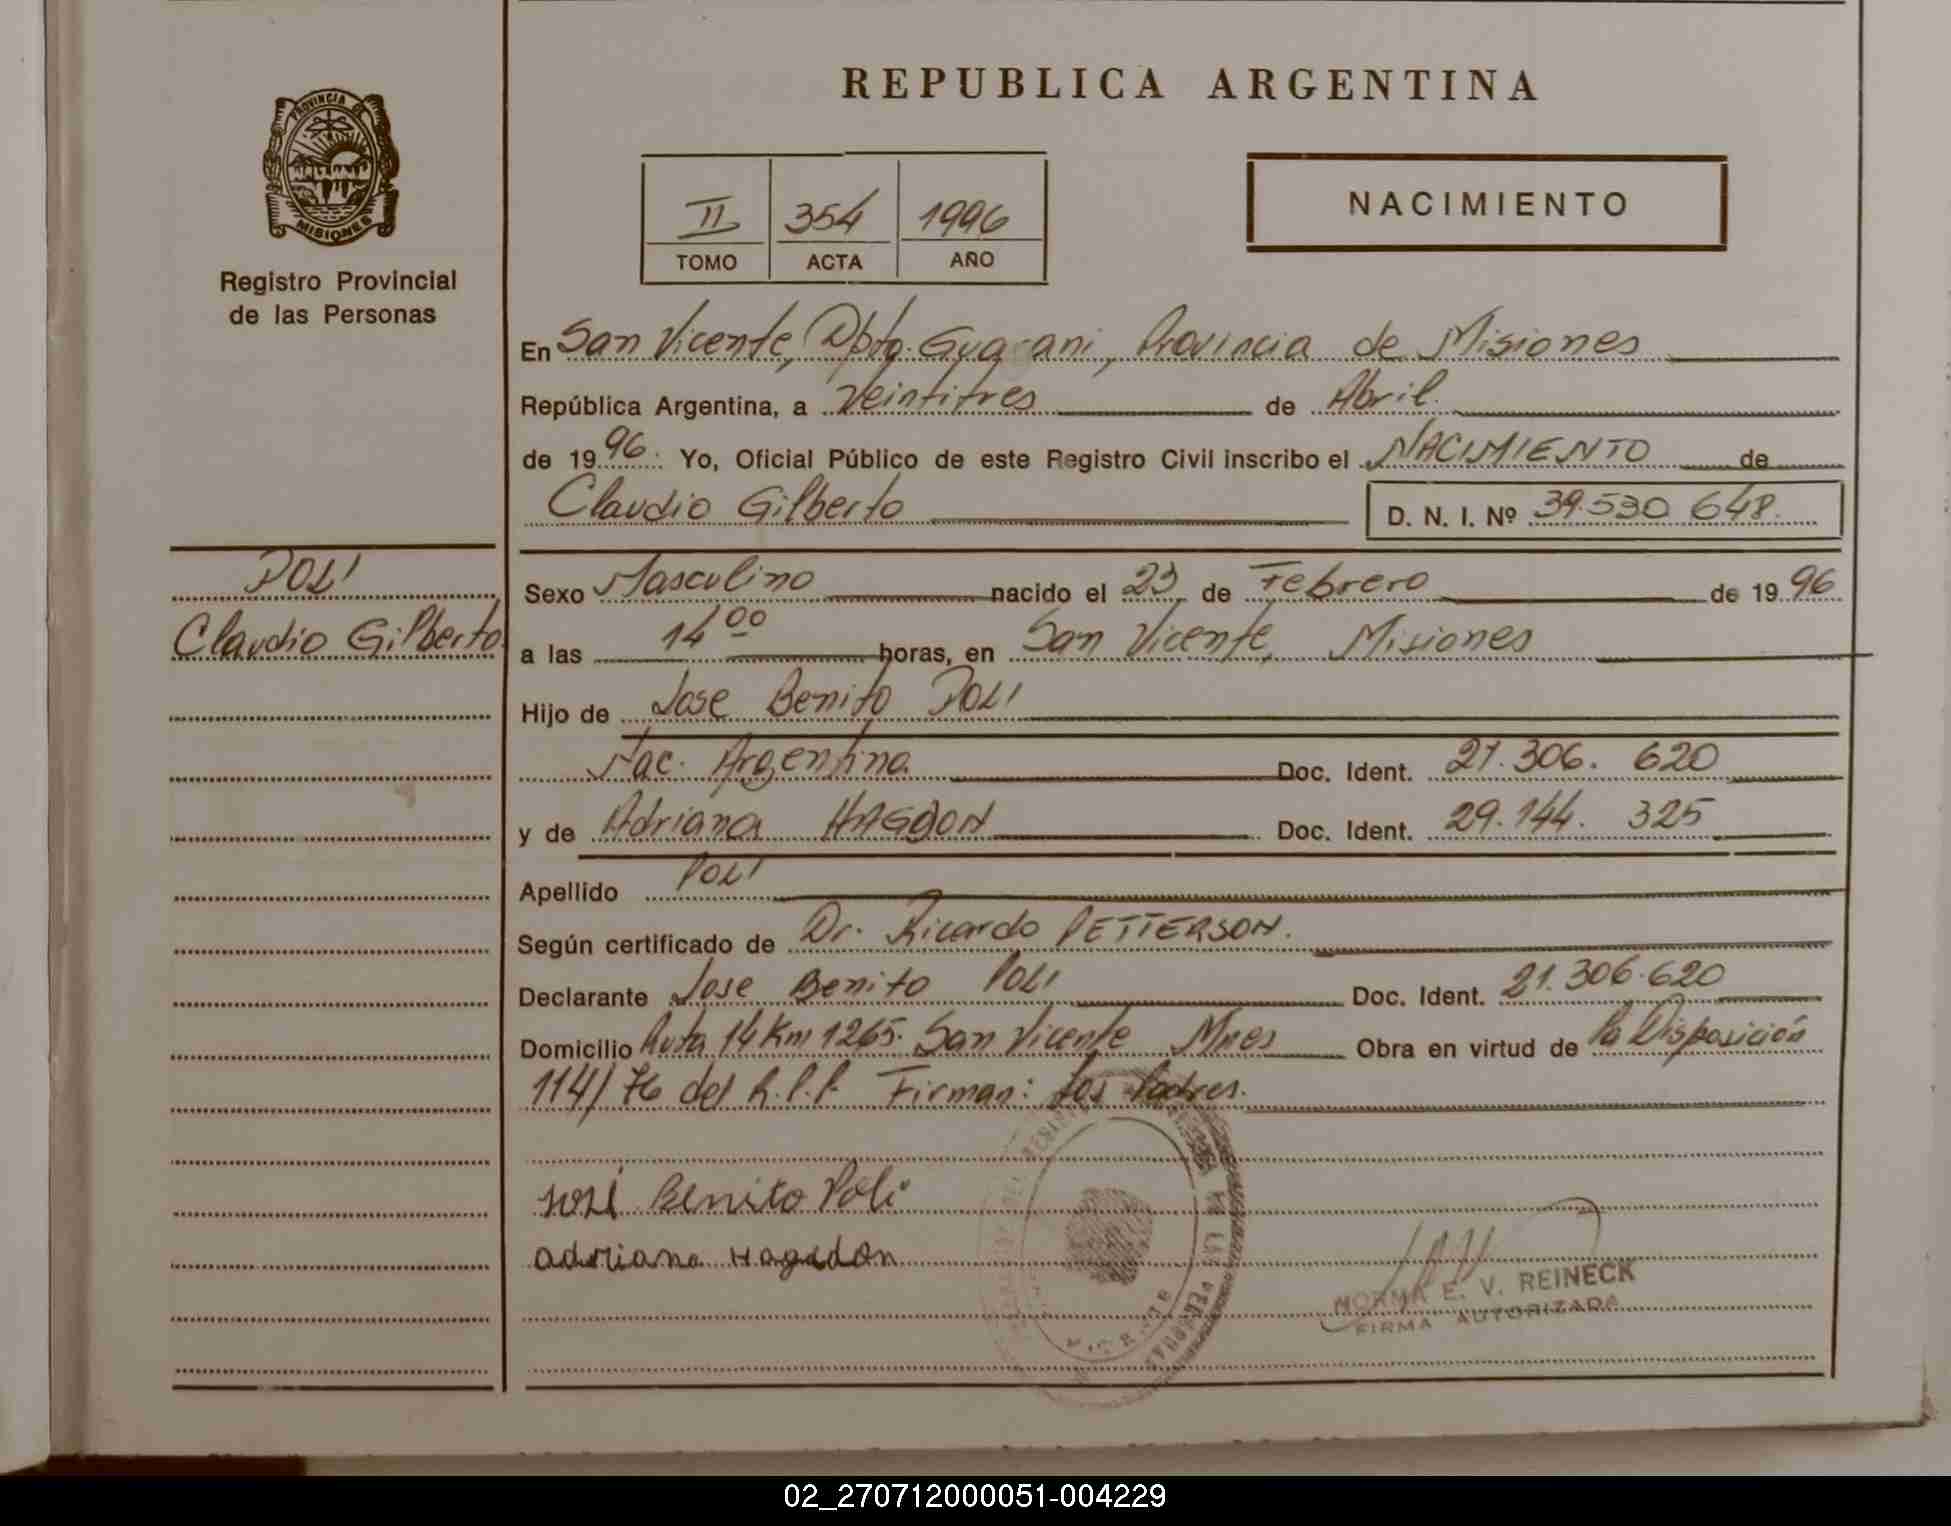 REPUBLICA ARGENTINA
PROVINCIA DE
MISIONES
Registro Provincial
de las Personas
II 354 1996
TOMO ACTA AÑO
NACIMIENTO
En San Vicente, Dpto. Guarani, Provincia de Misiones
República Argentina, a Veintitres de Abril.
de 1996. Yo, Oficial Público de este Registro Civil inscribo el NACIMIENTO de
Claudio Gilberto D. N. I. Nº 39.530 648.
POLI
Claudio Gilberto
Sexo Masculino nacido el 23 de Febrero de 1996
a las 14 00 horas, en San Vicente, Misiones
Hijo de Jose Benito POLI
Nac. Argentina Doc. Ident. 21.306. 620
y de Adriana Doc. Ident. 29.144. 325
Apellido POLI
Según certificado de Dr. Ricardo PETTERSON.
Declarante Jose Benito POLI Doc. Ident. 21.306.620
Domicilio Ruta 14 Km 1265. San Vicente Mnes Obra en virtud de la Disposición
114/76 del R.P.P. Firman: Los Padres.
José Benito Poli
adriana Hagedon
NORMA E. V. REINECK
FIRMA AUTORIZADA
02_270712000051-004229